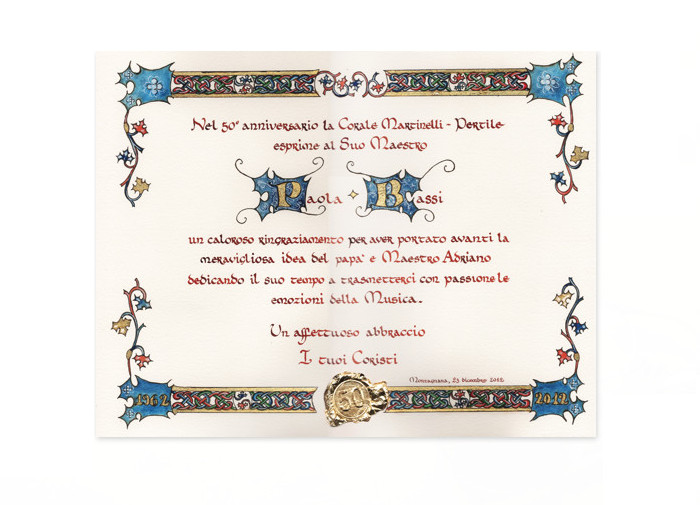 Nel 50° anniversario la Corale Martinelli - Pertile
esprime al Suo Maestro
Paola Bassi
un caloroso ringraziamento per aver portato avanti la
meravigliosa idea del papa' e Maestro Adriano
dedicando il suo tempo a trasmetterci con passione le
emozioni della Musica.
Un affettuoso abbraccio
I tuoi Coristi
Montagnana, 23 dicembre 2012
1962
50
2012